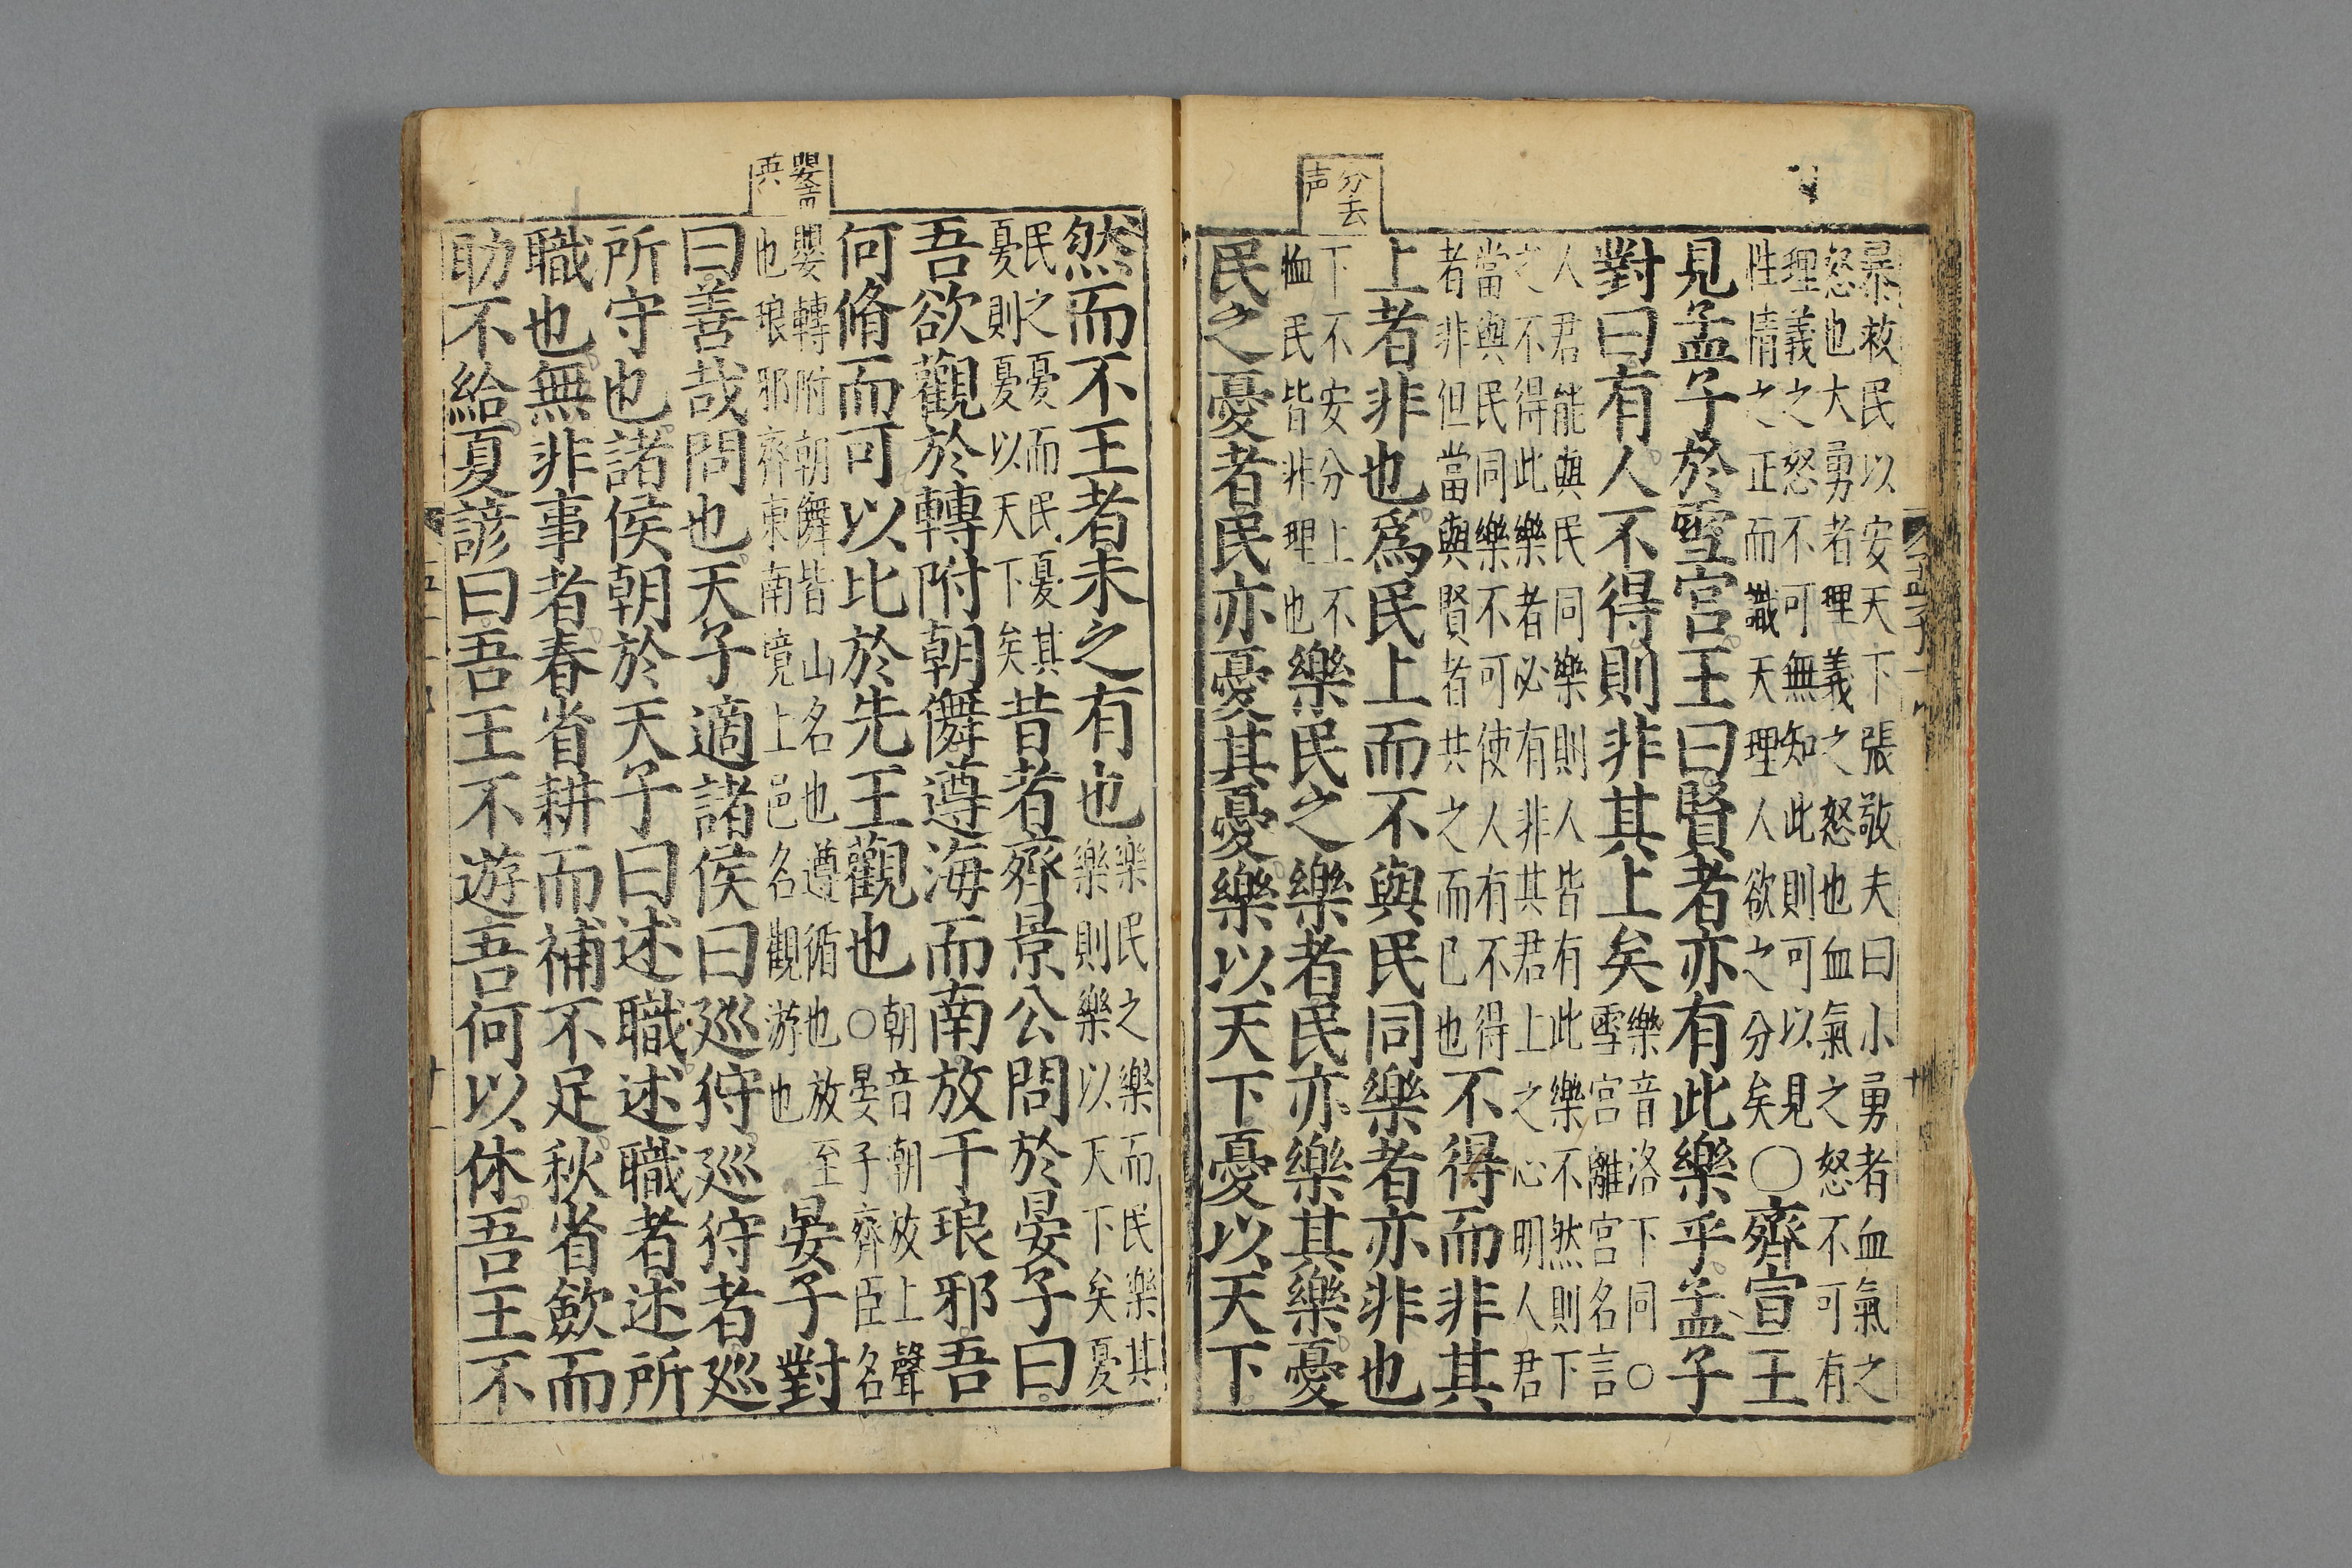 分去
声
暴救民以安天下張敬夫曰小勇者血氣之
怒也大勇者理義之怒也血氣之怒不可有
理義之怒不可無知此則可以見
性情之正而識天理人欲之分矣
○齊宣王
見孟子於雪宮王曰賢者亦有此樂乎孟子
對曰有人不得則非其上矣
樂音洛下同○
雪宮離宮名言
人君能與民同樂則人皆有此樂不然則下
之不得此樂者必有非其君上之心明人君
當與民同樂不可使人有不得
者非但當與賢者共之而已也
不得而非其
上者非也爲民上而不與民同樂者亦非也
下不安分上不
恤民皆非理也
樂民之樂者民亦樂其樂憂
民之憂者民亦憂其憂樂以天下憂以天下
嬰
然而不王者未之有也
樂民之樂而民樂其
樂則樂以天下矣憂
民之憂而民憂其
憂則憂以天下矣
昔者齊景公問於晏子曰
吾欲觀於轉附朝儛遵海而南放于琅邪吾
何脩而可以比於先王觀也
朝音朝放上聲
○晏子齊臣名
嬰轉附朝儛皆山名也遵循也放至
也琅邪齊東南境上邑名觀游也
晏子對
曰善哉問也天子適諸侯曰巡狩巡狩者巡
所守也諸侯朝於天子曰述職述職者述所
職也無非事者春省耕而補不足秋省歛而
助不給夏諺曰吾王不遊吾何以休吾王不